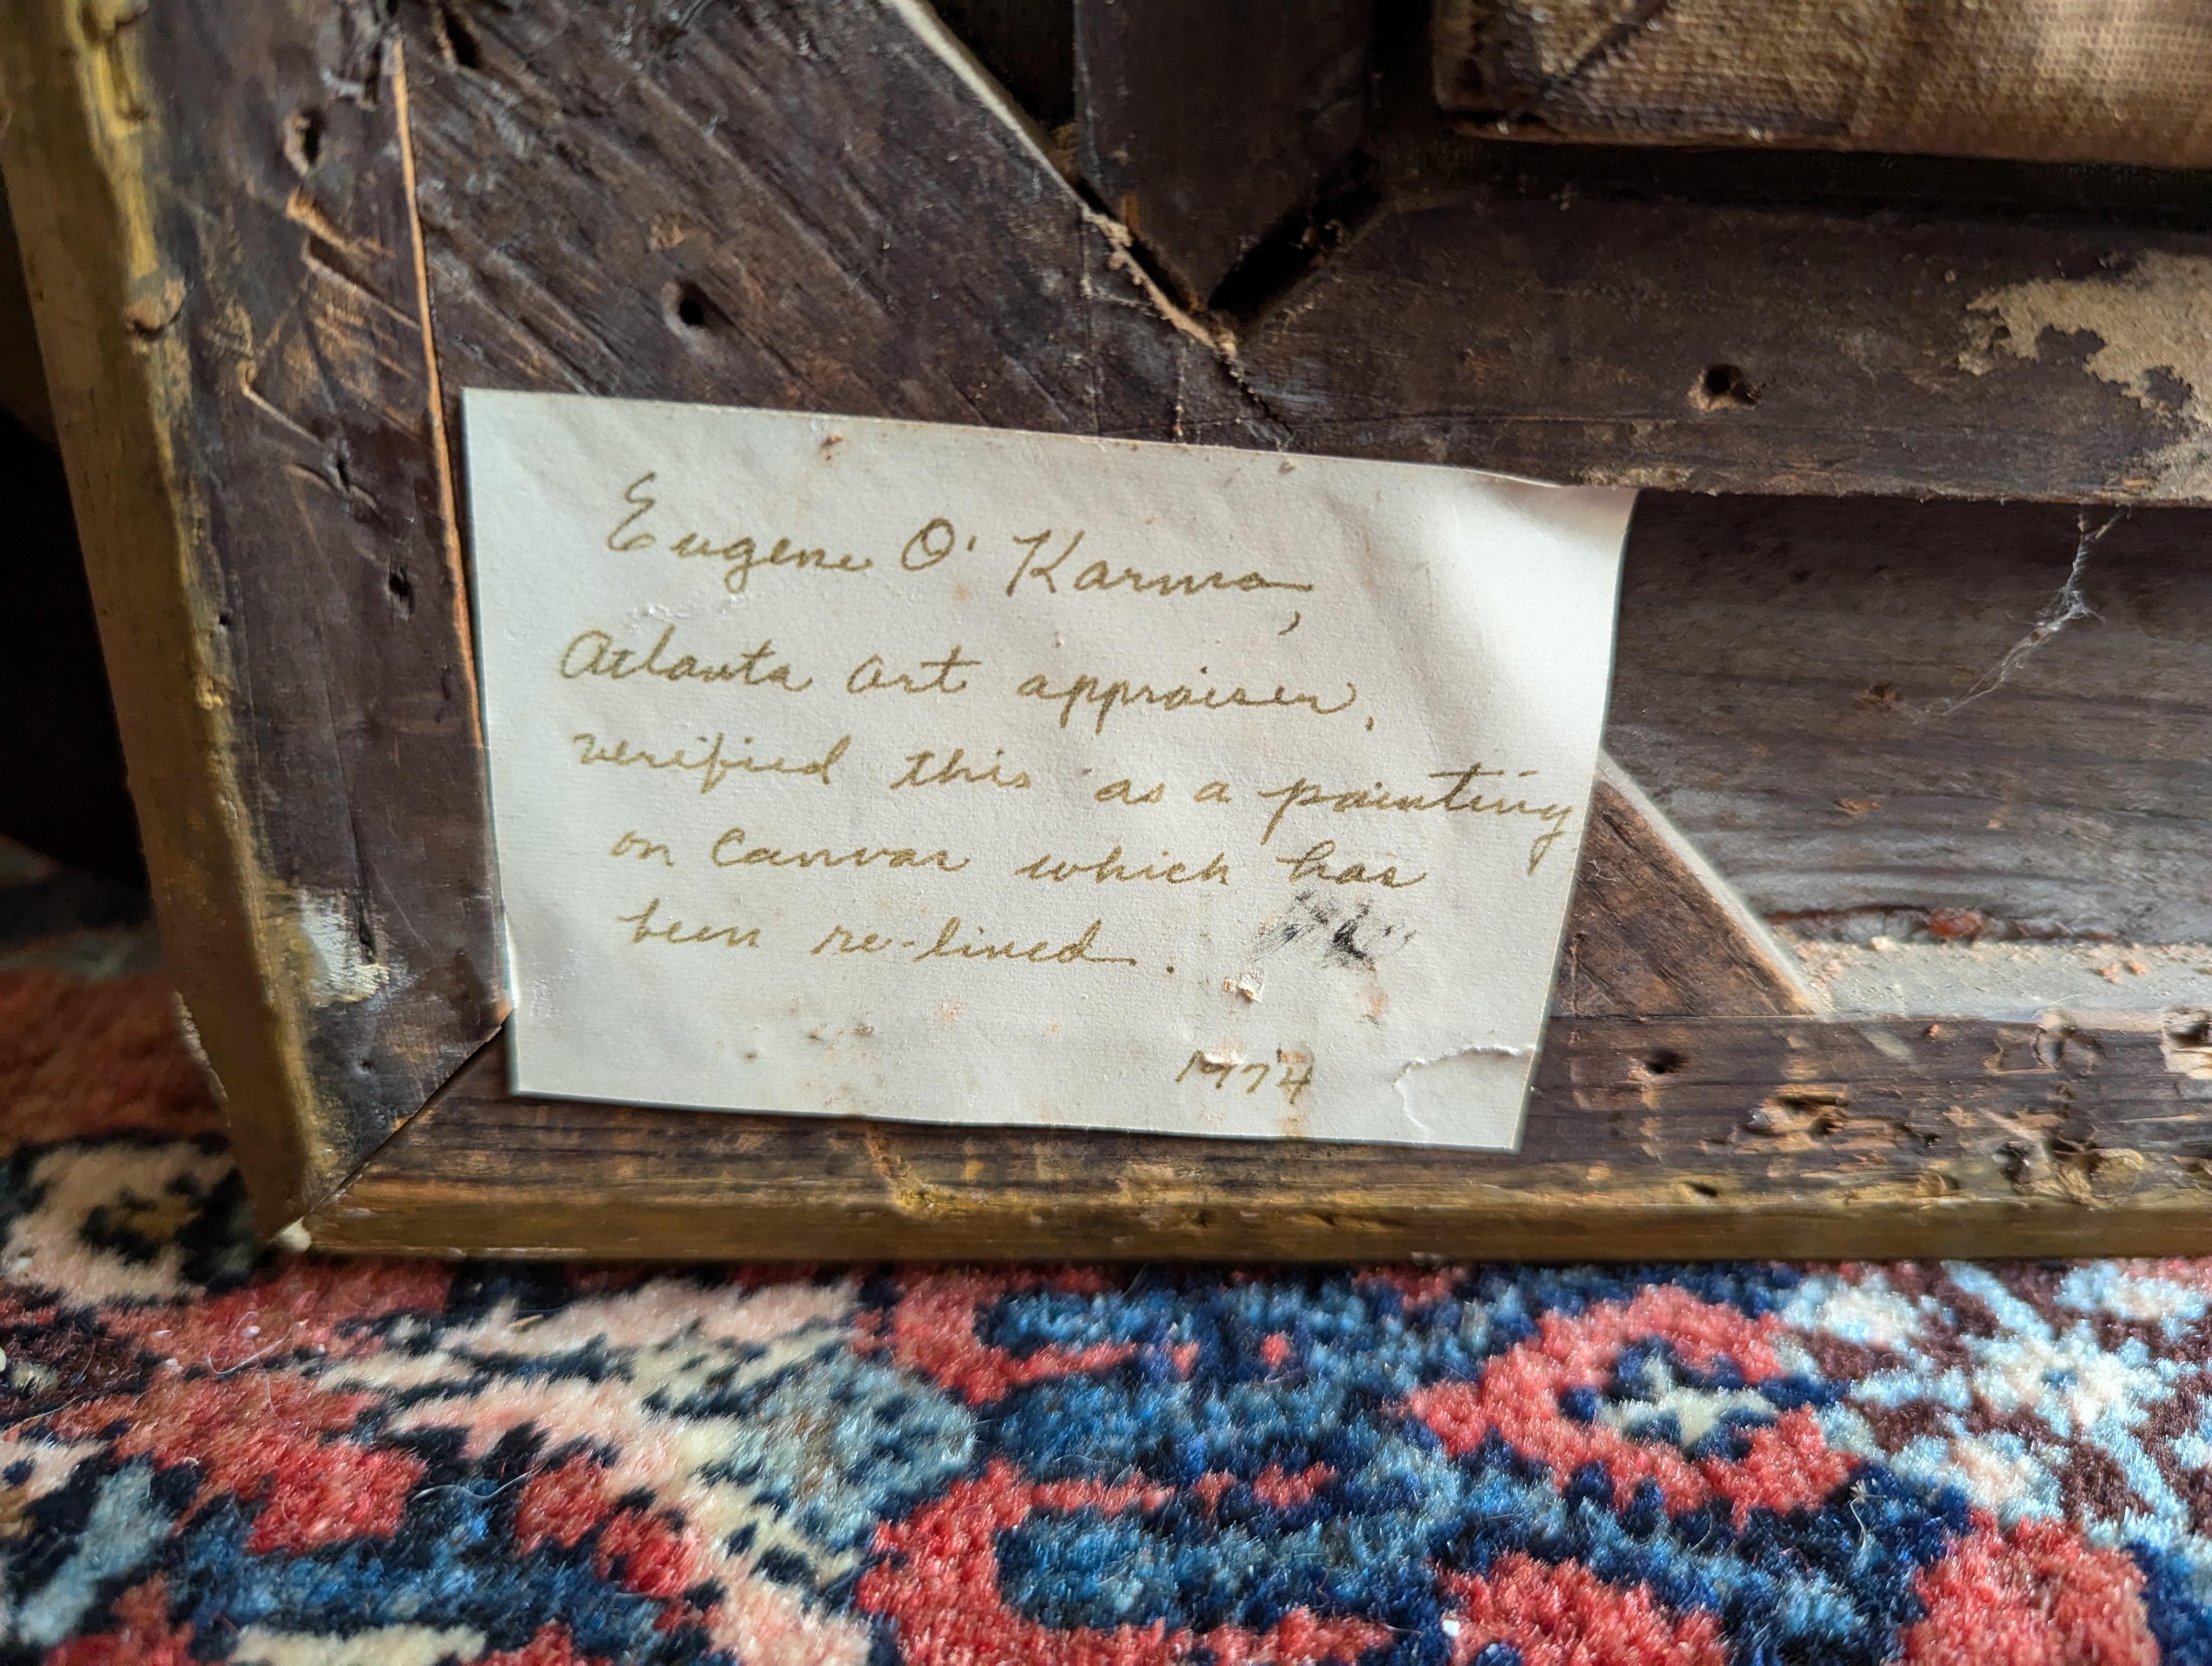 Eugene O' Karma,
Atlanta art appraiser,
verified this as a painting
on canvas which has
been re-lined.
1974